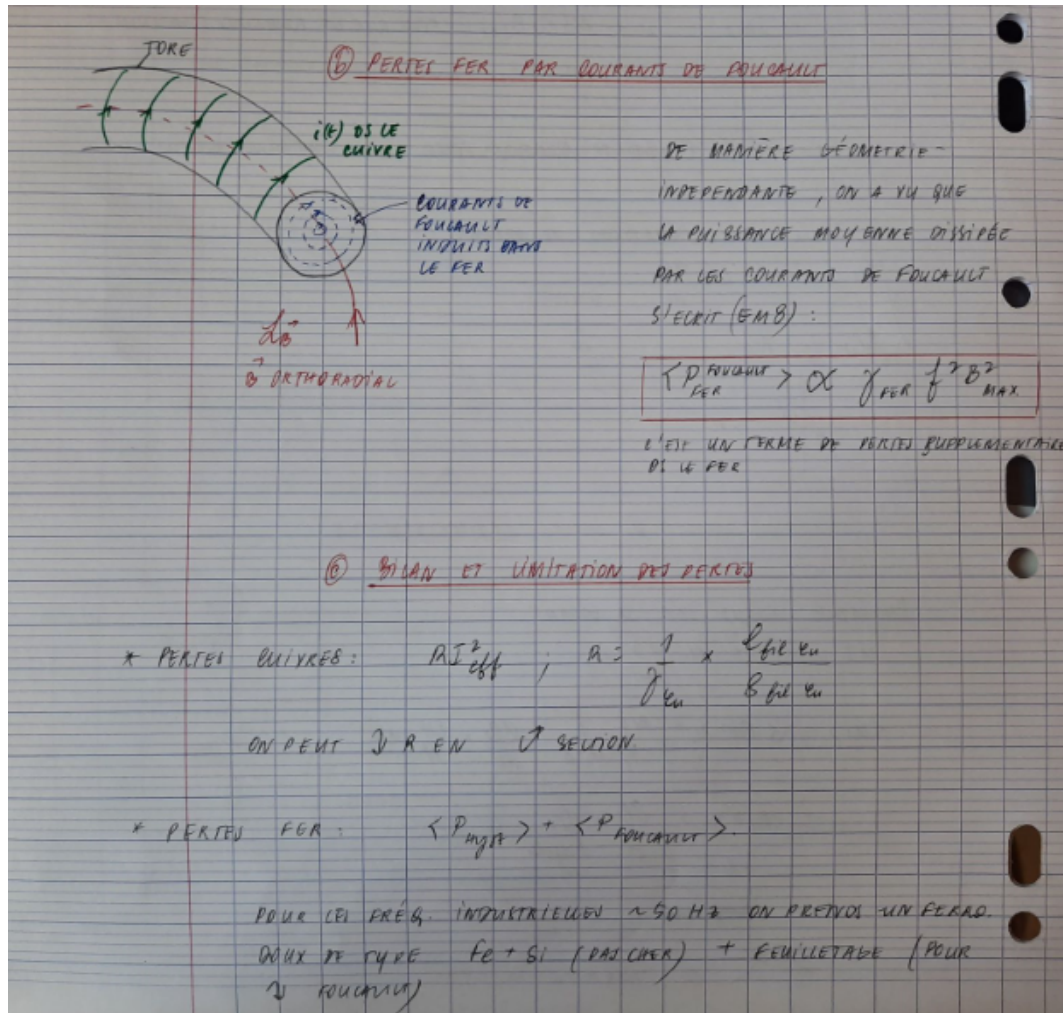 TORE
ⓑ PERTES FER PAR COURANTS DE FOUCAULT
i(t) DS LE
CUIVRE
COURANTS DE
FOUCAULT
INDUITS DANS
LE FER
B⃗ ORTHORADIAL
DE MANIÈRE GÉOMETRIE-
INDEPENDANTE, ON A VU QUE
LA PUISSANCE MOYENNE DISSIPÉE
PAR LES COURANTS DE FOUCAULT
S'ECRIT (EM8) :
< P_FER^FOUCAULT > ∝ γ_FER f² B²_MAX.
C'EST UN TERME DE PERTES SUPPLEMENTAIRE
DS LE FER
ⓒ BILAN ET LIMITATION DES PERTES
* PERTES CUIVRES : RI²_eff ; R = 1/γ_cu × l_fil cu / S_fil cu
ON PEUT ↓ R EN ↑ SECTION.
* PERTES FER : < P_Hyst > + < P_FOUCAULT >.
POUR LES FRÉQ. INDUSTRIELLES ~50 Hz ON PREND UN FERRO.
DOUX DE TYPE Fe + Si (PAS CHER) + FEUILLETAGE (POUR
↓ FOUCAULT)